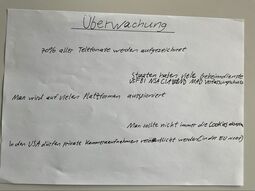 Überwachung
70% aller Telefonate werden aufgezeichnet
Staaten haben viele Geheimdienste
FBI NSA CIA BND MAD Verfassungsschutz
Man wird auf vielen Plattformen ausspioniert
Man sollte nicht immer die Cookies
In den USA dürfen private Kameraaufnahmen veröffentlicht werden (in der EU nicht)